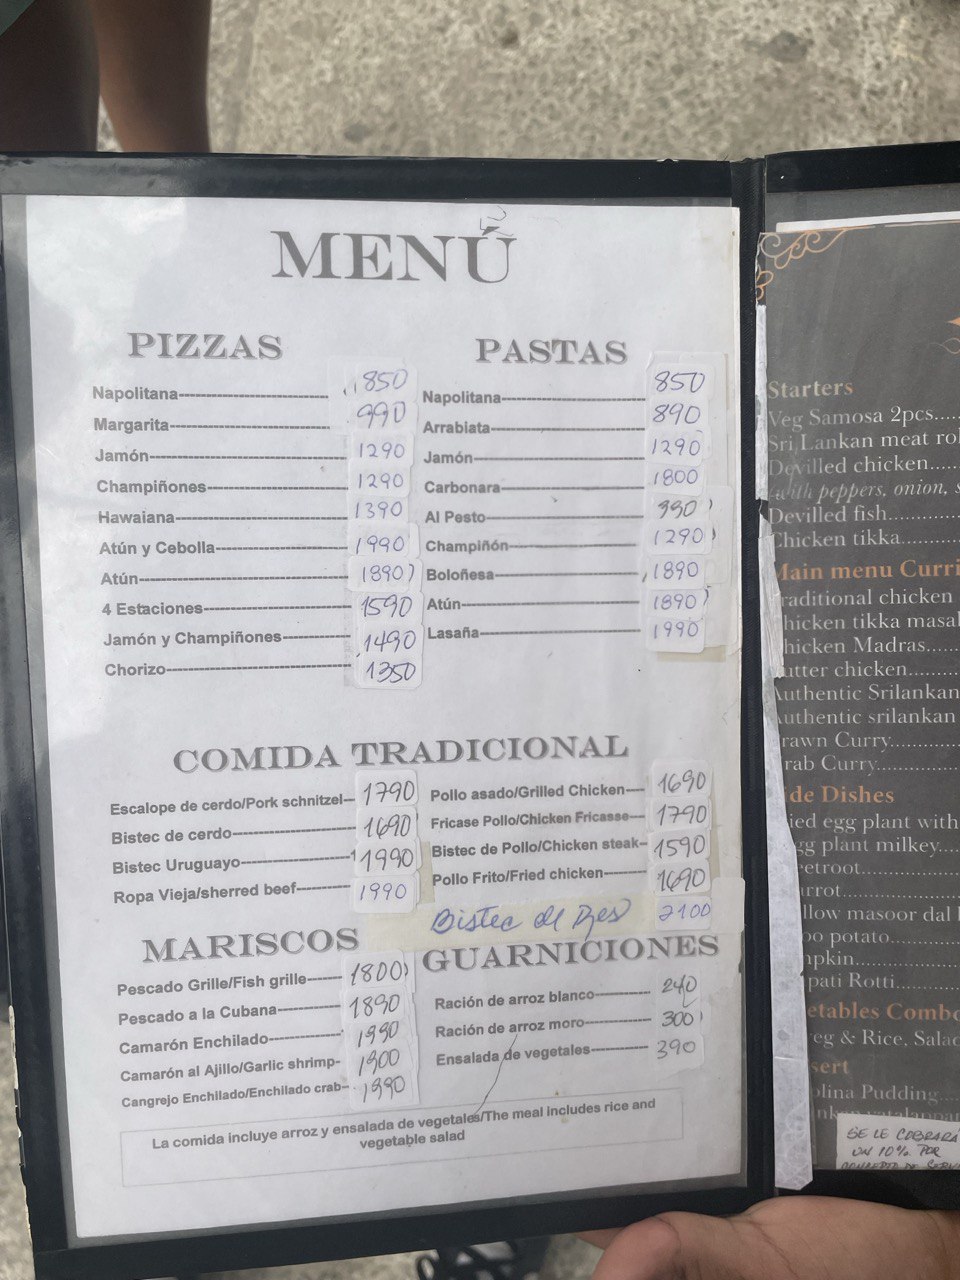 MENÚ
PIZZAS
Napolitana 850
Margarita 990
Jamón 1290
Champiñones 1290
Hawaiana 1390
Atún y Cebolla 1990
Atún 1890
4 Estaciones 1590
Jamón y Champiñones 1490
Chorizo 1350
PASTAS
Napolitana 850
Arrabiata 890
Jamón 1290
Carbonara 1800
Al Pesto 990
Champiñón 1290
Boloñesa 1890
Atún 1890
Lasaña 1990
COMIDA TRADICIONAL
Escalope de cerdo/Pork schnitzel 1790
Bistec de cerdo 1690
Bistec Uruguayo 1990
Ropa Vieja/sherred beef 1990
Pollo asado/Grilled Chicken 1690
Fricase Pollo/Chicken Fricasse 1790
Bistec de Pollo/Chicken steak 1590
Pollo Frito/Fried chicken 1690
Bistec de Res 2100
MARISCOS
Pescado Grille/Fish grille 1800
Pescado a la Cubana 1890
Camarón Enchilado 1990
Camarón al Ajillo/Garlic shrimp 1900
Cangrejo Enchilado/Enchilado crab 1990
GUARNICIONES
Ración de arroz blanco 240
Ración de arroz moro 300
Ensalada de vegetales 390
La comida incluye arroz y ensalada de vegetales/The meal includes rice and
vegetable salad
Starters
Veg Samosa 2pcs.....
Sri Lankan meat
Devilled chicken.....
with peppers, onion,
Devilled fish
Chicken tikka
Main menu
chicken
tikka
Madras
chicken
Authentic Srilankan
srilankan
Curry
Curry
Dishes
egg plant with
plant milkey
masoor dal
potato
Rotti
& Rice,
Pudding
SE LE COBRARÁ
UN 10% POR
CONCEPTO DE